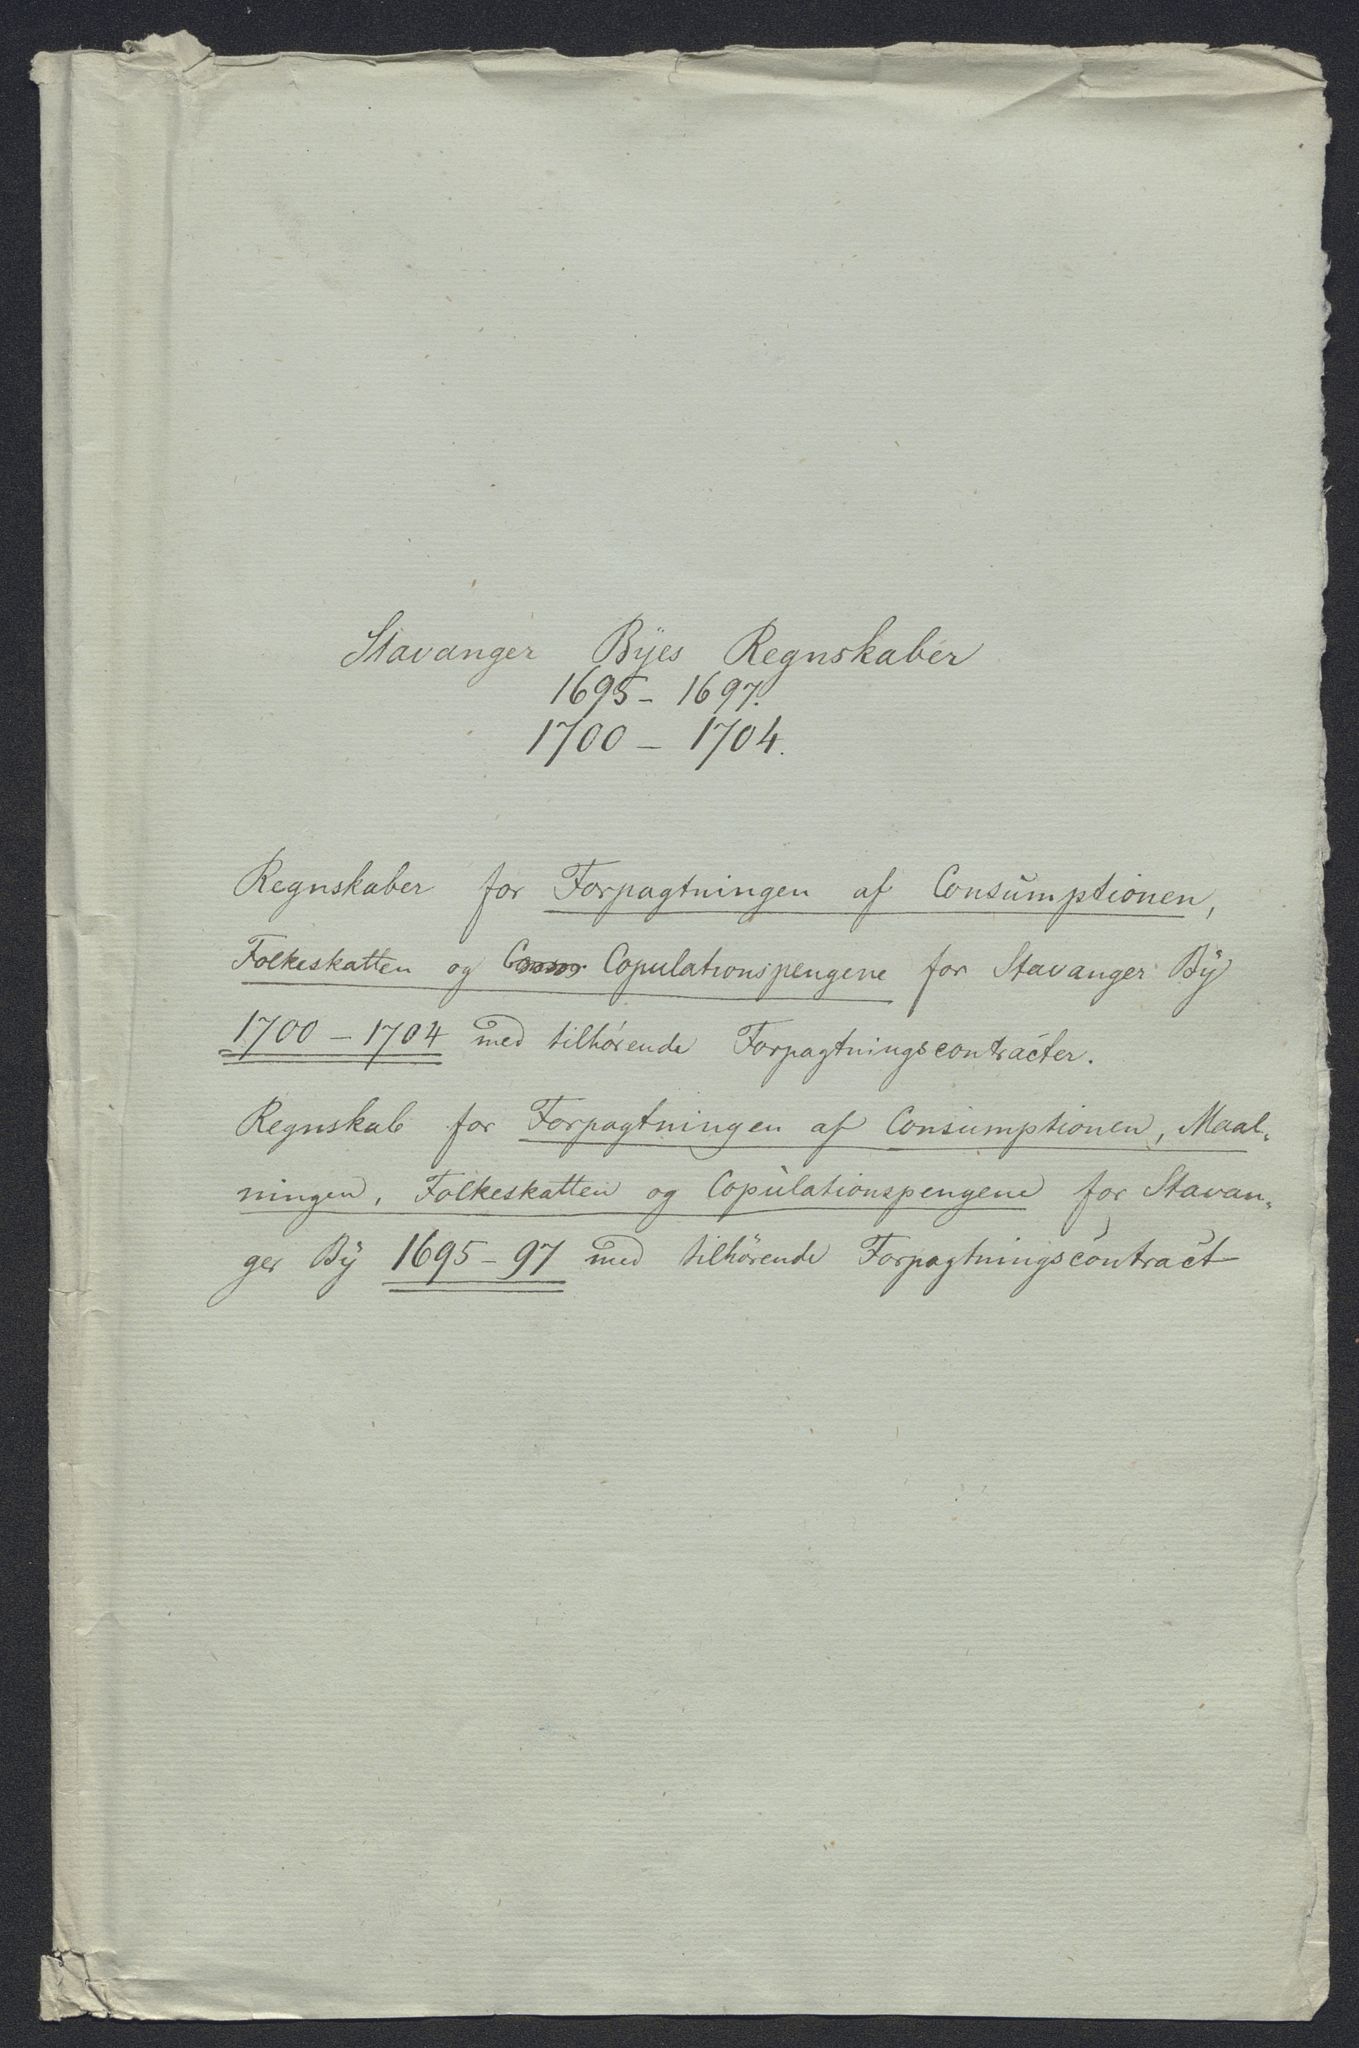 Stavanger Byes Regnskaber
1695 - 1697.
1700 - 1704.
Regnskaber for Forpagtningen af Consumptionen,
Folkeskatten og Copulationspengene for Stavanger By
1700 - 1704 med tilhörende Forpagtningscontracter.
Regnskab for Forpagtningen af Consumptionen, Maal-
ningen, Folkeskatten og Copulationspengene for Stavan-
ger By 1695 - 97 med tilhörende Forpagtningscontract